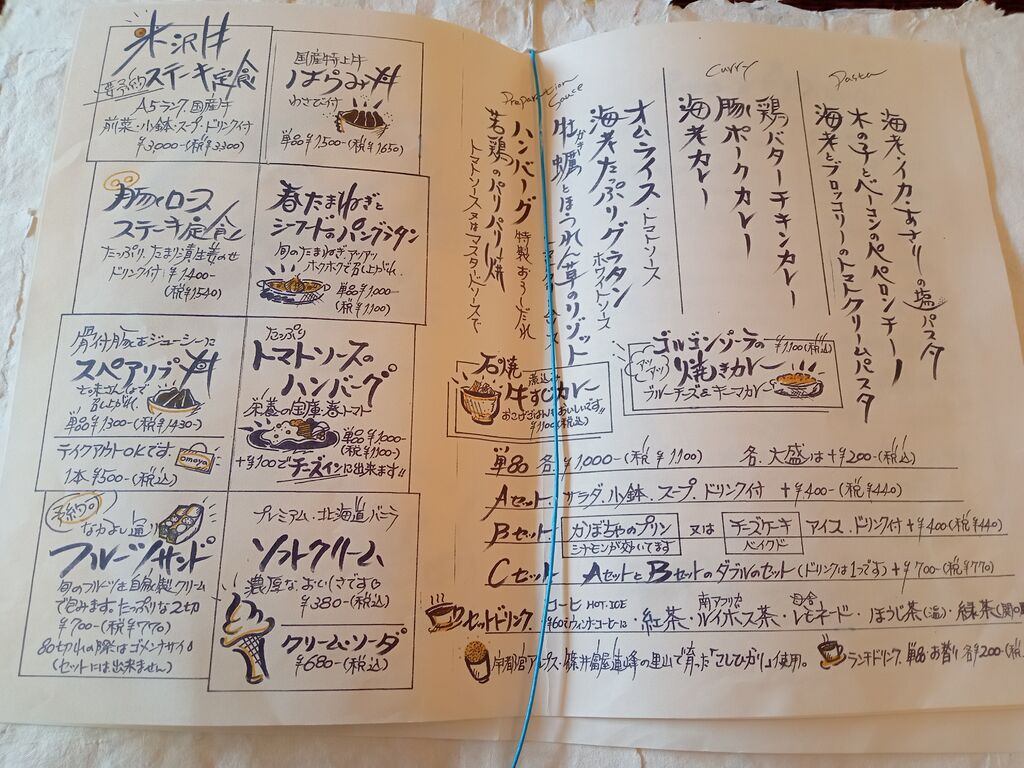 米沢牛
要予約 ステーキ定食
A5ランク国産牛
前菜・小鉢・スープ・ドリンク付
¥3,000-(税¥3,300)
国産特上牛
はらみ丼
わさび付
単品¥1500-(税¥1650)
豚ヒロース
ステーキ定食
ドリンク付 ¥1400-
(税¥1540)
春たまねぎと
シーフードのパングラタン
旬のたまねぎ、アツアツ
ホクホクで召し上がれ。
単品¥1000-
(税¥1100)
骨付肉をジューシーに
スペアリブ丼
七味さんしょうで
召し上がれ。
単品¥1300-(税¥1430-)
テイクアウトOKです。
omoya
1本¥500-(税込)
たっぷり
トマトソースの
ハンバーグ
栄養の宝庫春トマト
単品¥1000-
(税¥1100-)
+¥100でチーズインに出来ます!!
予約。
なかよし通り
フルーツサンド
旬のフルーツを自家製クリーム
で包みます。たっぷりな2切
¥700-(税¥770)
売切れの際はゴメンナサイ
(セットには出来ません)
プレミアム・北海道バニラ
ソフトクリーム
濃厚なおいしさです
¥380-(税込)
クリーム・ソーダ
¥680-(税込)
Pasta
海老・イカ・あさりの塩パスタ
木の子とベーコンのペペロンチーノ
海老とブロッコリーのトマトクリームパスタ
Curry
鶏バターチキンカレー
豚ポークカレー
海老カレー
Preparation Sauce
オムライス トマトソース
海老たっぷりグラタン ホワイトソース
牡蠣とほうれん草のリゾット
ハンバーグ 特製おろしだれ
若鶏のパリパリ焼
トマトソース又はマスタードソースで
石焼
煮込み
牛すじカレー
おこげごはんもおいしいです!!
¥1100(税込)
ゴルゴンゾーラの
¥1100(税込)
アツアツ
焼きカレー
ブルーチーズ&キーマカレー
単品 各 ¥1000-(税¥1100 各、大盛りは+¥200-(税込)
Aセット サラダ、小鉢、スープ、ドリンク付 +¥400-(税¥440)
Bセット かぼちゃのプリン 又は チーズケーキ アイス、ドリンク付+¥400(税¥440)
シナモンが効いてます ベイクド
Cセット AセットとBセットのダブルのセット(ドリンクは1つです)+¥700-(税¥770)
セットドリンク コーヒー HOT・ICE ・紅茶・南アフリカ ルイボス茶・自家 レモネード・ほうじ茶(温)・緑茶
宇都宮アルプス・篠井富屋連峰の里山で育った「こしひかり」使用。
ランチドリンク、単品・お替り各¥200-(税